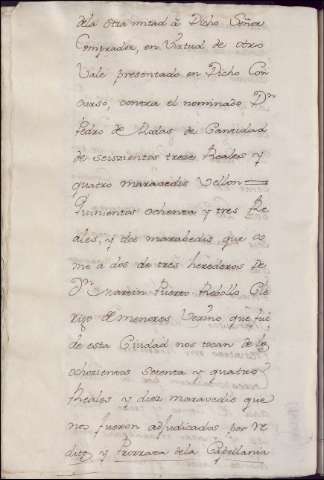 dela otra mitad à Dicho Señor
Comprador, en Virtud de otro
Vale presentado en Dicho Con
curso, contra el nominado Dn
Pedro de de Cantidad
de Seiszientos treze Reales y
quatro maravedis Vellon
Quinientos ochenta y tres Re
ales, y dos marabedis que co
mo a dos de tres herederos de
Dn Martin Puerto Cle
rigo de menores Vezino que fué
de esta Ciudad nos tocan de los
ochozientos setenta y quatro
Reales y diez maravedis que
nos fueron adjudicados por re
ditos y Prorrata dela Capellania